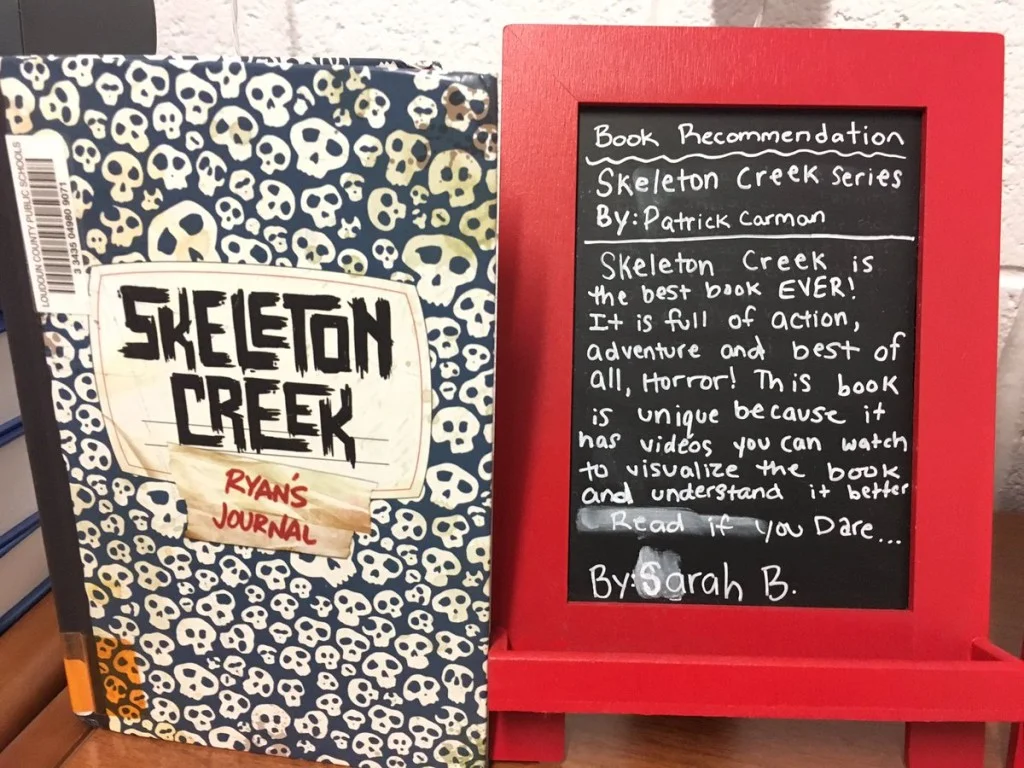 LOUDOUN COUNTY PUBLIC SCHOOLS
3 3435 04980 9071
SKELETON
CREEK
RYAN'S
JOURNAL
Book Recommendation
Skeleton Creek Series
By: Patrick Carman
Skeleton Creek is
the best book EVER!
It is full of action,
adventure and best of
all, Horror! This book
is unique because it
has videos you can watch
to visualize the book
and understand it better
Read if you Dare...
By: Sarah B.